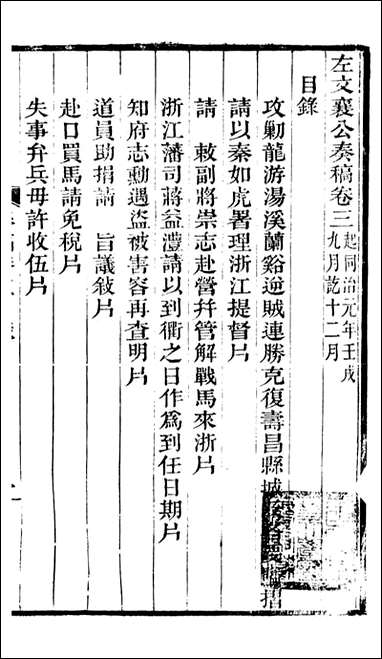 左文襄公奏稿卷三起同治元年壬戌九月訖十二月
目錄
攻勦龍游湯溪蘭谿逆賊連勝克復壽昌縣城摺
請以秦如虎署理浙江提督片
請　敕副將崇志赴營幷管解戰馬來浙片
浙江藩司蔣益澧請以到衢之日作爲到任日期片
知府志勳遇盜被害容再查明片
道員助捐請　旨議敘片
赴口買馬請免稅片
失事弁兵毋許收伍片